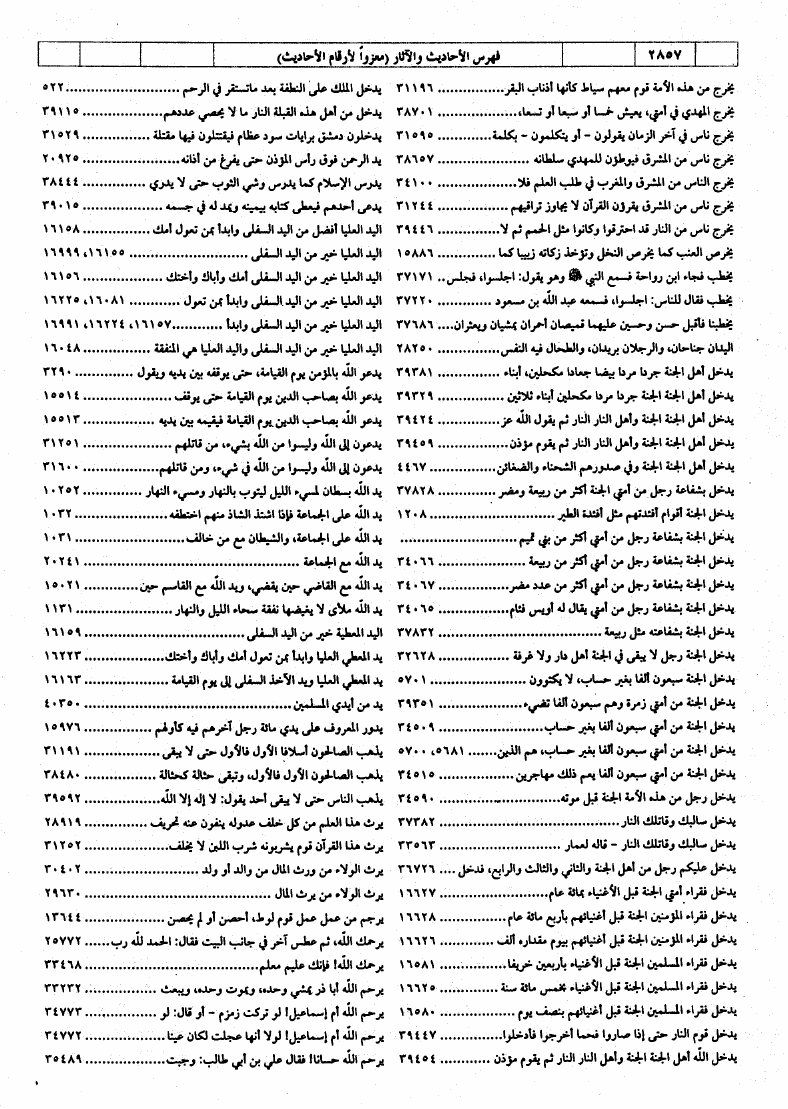 ٢٨٥٧
فهرس الأحاديث والآثار (معزواً لأرقام الأحاديث)
يخرج من هذه الأمة قوم معهم سياط كأنها أذناب البقر............... ٣١١٩٦
يخرج المهدي في أمتي، يعيش خمسا أو سبعا أو تسعا،............... ٣٨٧٠١
يخرج ناس في آخر الزمان يقولون - أو يتكلمون - بكلمة............... ٣١٥٩٥
يخرج ناس من المشرق فيوطؤن للمهدي سلطانه ............... ٣٨٦٥٧
يخرج الناس من المشرق والمغرب في طلب العلم فلا............... ٣٤١٠٠
يخرج ناس من المشرق يقرؤن القرآن لا يجاوز تراقيهم ............... ٣١٢٤٤
يخرج ناس من النار قد احترقوا وكانوا مثل الحمم ثم لا............... ٣٩٤٤٦
يخرص العنب كما يخرص النخل وتؤخذ زكاته زبيبا كما ............... ١٥٨٨٦
يخطب فجاء ابن رواحة فسمع النبي ﷺ وهو يقول: اجلسوا، فجلس.. ٣٧١٧١
يخطب فقال للناس: اجلسوا، فسمعه عبد الله بن مسعود ............... ٣٧٢٢٠
يخطبنا فأقبل حسن وحسين عليهما قميصان أحمران يمشيان ويعثران.... ٣٧٦٨٦
اليدان جناحان، والرجلان بريدان، والطحال فيه النفس............... ٢٨٢٥٠
يدخل أهل الجنة جردا مردا بيضا جعادا مكحلين، أبناء ............... ٣٩٣٨١
يدخل أهل الجنة جردا مردا مكحلين أبناء ثلاثين............... ٣٩٣٢٩
يدخل أهل الجنة الجنة وأهل النار النار ثم يقول الله عز............... ٣٩٤٢٤
يدخل أهل الجنة الجنة وأهل النار النار ثم يقوم مؤذن............... ٣٩٤٥٩
يدخل أهل الجنة الجنة وفي صدورهم الشحناء والضغائن............... ٤٤٦٧
يدخل بشفاعة رجل من أمتي الجنة أكثر من ربيعة ومضر ............... ٣٧٨٢٨
يدخل الجنة أقوام أفئدتهم مثل أفئدة الطير ............... ١٢٠٨
يدخل الجنة بشفاعة رجل من أمتي أكثر من بني تميم ...............
يدخل الجنة بشفاعة رجل من أمتي أكثر من ربيعة ............... ٣٤٠٦٦
يدخل الجنة بشفاعة رجل من أمتي أكثر من عدد مضر............... ٣٤٠٦٧
يدخل الجنة بشفاعة رجل من أمتي يقال له أويس فئام ............... ٣٤٠٦٥
يدخل الجنة بشفاعته مثل ربيعة ............... ٣٧٨٣٢
يدخل الجنة رجل لا يبقى في الجنة أهل دار ولا غرفة ............... ٣٢٦٢٨
يدخل الجنة سبعون ألفا بغير حساب، لا يكتوون ............... ٥٧٠١
يدخل الجنة من أمتي زمرة وهم سبعون ألفا تضيء............... ٣٩٣٥١
يدخل الجنة من أمتي سبعون ألفا بغير حساب............... ٣٤٥٠٩
يدخل الجنة من أمتي سبعون ألفا بغير حساب، هم الذين....... ٥٦٨١، ٥٧٠٠
يدخل الجنة من أمتي سبعون ألفا يعم ذلك مهاجرين ............... ٣٤٥١٥
يدخل رجل من هذه الأمة الجنة قبل موته............... ٣٤٥٩٠
يدخل سالبك وقاتلك النار............... ٣٧٣٨٢
يدخل سالبك وقاتلك النار - قاله لعمار ............... ٣٣٥٦٣
يدخل عليكم رجل من أهل الجنة والثاني والثالث والرابع، فدخل .... ٣٦٧٢٦
يدخل فقراء أمتي الجنة قبل الأغنياء بمائة عام............... ١٦٦٢٧
يدخل فقراء المؤمنين الجنة قبل أغنيائهم بأربع مائة عام ............... ١٦٦٢٨
يدخل فقراء المؤمنين الجنة قبل أغنيائهم بيوم مقداره ألف............... ١٦٦٢٦
يدخل فقراء المسلمين الجنة قبل الأغنياء بأربعين خريفا............... ١٦٥٨١
يدخل فقراء المسلمين الجنة قبل الأغنياء بخمس مائة سنة ............... ١٦٦٢٥
يدخل فقراء المسلمين الجنة قبل أغنيائهم بنصف يوم ............... ١٦٥٨٠
يدخل قوم النار حتى إذا صاروا فحما أخرجوا فأدخلوا............... ٣٩٤٤٧
يدخل الله أهل الجنة الجنة وأهل النار النار ثم يقوم مؤذن ............... ٣٩٤٥٤
يدخل الملك على النطفة بعد ماتستقر في الرحم ............... ٥٢٢
يدخل من أهل هذه القبلة النار ما لا يحصي عددهم............... ٣٩١١٥
يدخلون دمشق برايات سود عظام فيقتتلون فيها مقتلة ............... ٣١٥٢٩
يد الرحمن فوق رأس المؤذن حتى يفرغ من أذانه............... ٢٠٩٢٥
يدرس الإسلام كما يدرس وشي الثوب حتى لا يدري ............... ٣٨٤٤٤
يدعى أحدهم فيعطى كتابه بيمينه ويمد له في جسمه ............... ٣٩٠١٥
اليد العليا أفضل من اليد السفلى وابدأ بمن تعول أمك ............... ١٦١٥٨
اليد العليا خير من اليد السفلى ............... ١٦١٥٥، ١٦٩٩٩
اليد العليا خير من اليد السفلى أمك وأباك وأختك ............... ١٦١٥٦
اليد العليا خير من اليد السفلى وابدأ بمن تعول ............... ١٦٠٨١، ١٦٢٢٥
اليد العليا خير من اليد السفلى وابدأ ............١٦١٥٧، ١٦٢٢٤، ١٦٩٩١
اليد العليا خير من اليد السفلى واليد العليا هي المنفقة ............... ١٦٠٤٨
يدعو الله بالمؤمن يوم القيامة، حتى يوقفه بين يديه ويقول ............... ٣٢٩٠
يدعو الله بصاحب الدين يوم القيامة حتى يوقف ............... ١٥٥١٤
يدعو الله بصاحب الدين يوم القيامة فيقيمه بين يديه ............... ١٥٥١٣
يدعون إلى الله وليسوا من الله بشيء، من قاتلهم ............... ٣١٢٥١
يدعون إلى الله وليسوا من الله في شيء، ومن قاتلهم............... ٣١٦٠٠
يد الله بسطان لمسيء الليل ليتوب بالنهار ومسيء النهار ............... ١٠٢٥٢
يد الله على الجماعة فإذا اشتذ الشاذ منهم اختطفه ............... ١٠٣٢
يد الله على الجماعة، والشيطان مع من خالف............... ١٠٣١
يد الله مع الجماعة ............... ٢٠٢٤١
يد الله مع القاضي حين يقضي، ويد الله مع القاسم حين............... ١٥٠٢١
يد الله ملأى لا يغيضها نفقة سحاء الليل والنهار ............... ١١٣١
اليد المعطية خير من اليد السفلى............... ١٦١٥٩
يد المعطي العليا وابدأ بمن تعول أمك وأباك وأختك............... ١٦٢٢٣
يد المعطي العليا ويد الآخذ السفلى إلى يوم القيامة ............... ١٦١٦٣
يد من أيدي المسلمين............... ٤٠٣٥٠
يدور المعروف على يدي مائة رجل آخرهم فيه كأولهم ............... ١٥٩٧٦
يذهب الصالحون أسلافا الأول فالأول حتى لا يبقى ............... ٣١١٩١
يذهب الصالحون الأول فالأول، وتبقى حثالة كحثالة ............... ٣٨٤٨٠
يذهب الناس حتى لا يبقى أحد يقول: لا إله إلا الله............... ٣٩٥٩٢
يرث هذا العلم من كل خلف عدوله ينفون عنه تحريف ............... ٢٨٩١٩
يرث هذا القرآن قوم يشربونه شرب اللبن لا يخلف............... ٣١٢٥٢
يرث الولاء من ورث المال من والد أو ولد ............... ٣٠٤٠٢
يرث الولاء من يرث المال ............... ٢٩٦٣٠
يرجم من عمل عمل قوم لوط، أحصن أو لم يحصن ............... ١٣٦٤٤
يرحمك الله، ثم عطس آخر في جانب البيت فقال: الحمد لله رب...... ٢٥٧٧٢
يرحمك الله! فإنك عليم معلم............... ٣٣٤٦٨
يرحم الله أبا ذر يمشي وحده، ويموت وحده، ويبعث ............... ٣٣٢٣٢
يرحم الله أم إسماعيل! لو تركت زمزم - أو قال: لو ............... ٣٤٧٧٣
يرحم الله أم إسماعيل! لولا أنها عجلت لكان عينا ............... ٣٤٧٧٢
يرحم الله حسانا! فقال علي بن أبي طالب: وجبت............... ٣٥٤٨٩